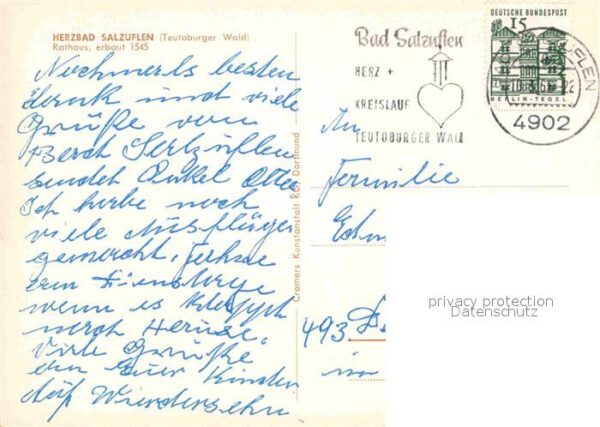 HERZBAD SALZUFLEN (Teutoburger Wald)
Rathaus, erbaut 1545
Nochmals besten
Dank und viele
Grüße von
Bad Salzuflen
sendet Onkel Otto
Ich habe noch
viele Ausflüge
gemacht. Fahre
am Dienstage
wenn es klappt
nach Hause.
Viele Grüße
an Euer Kinder
auf Wiedersehn
Cramers Kunstanstalt KG, Dortmund
Bad Salzuflen
HERZ +
KREISLAUF
TEUTOBURGER WALD
DEUTSCHE BUNDESPOST
15
BERLIN-TEGEL
4902
An
Familie
493
privacy protection
Datenschutz